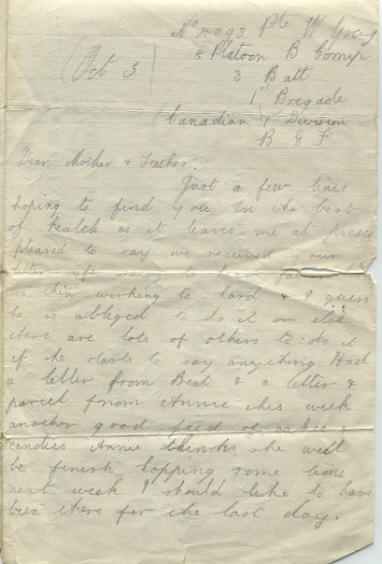 Pte W Gray
(Oct 3)
8 Platoon B Comp
3 Batt
1st Brigade
Canadian 1st Division
B E F
Dear Mother & Father
Just a few lines
hoping to find you in the best
of health as it leaves me at
pleased to say we received your
working to hard & I guess
he is obliged to do it or else
there are lots of others to do it
if he starts to say anything Had
a letter from Beat & a letter &
parcel from Annie this week
another good feed of cakes &
candies Annie thinks she will
be finish hopping some time
next week I should like to have
been there for the last day.